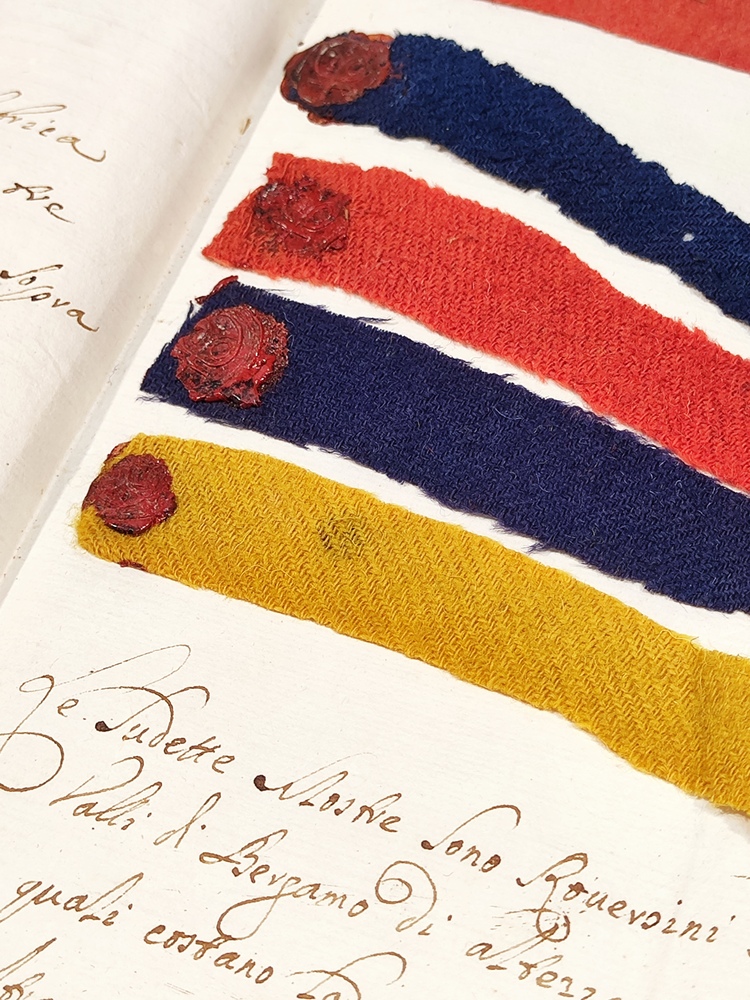 tre
sopra
Le sudette Mostre sono Rouersini
Valli di Bergamo di altezz
quali costano